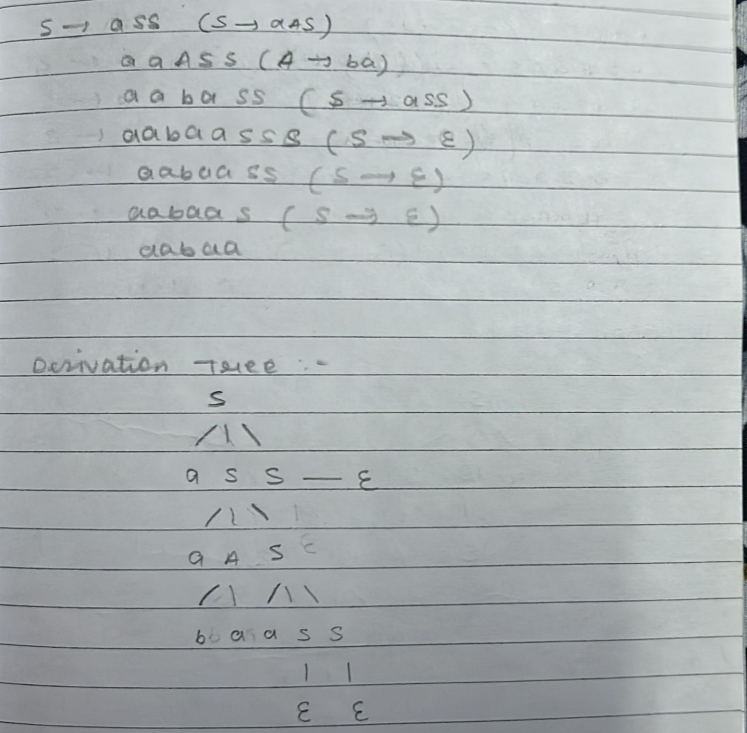 S → a S S (S → a A S)
a a A S S (A → b a)
a a b a S S (S → a S S)
a a b a a S S S (S → ε)
a a b a a S S (S → ε)
a a b a a S (S → ε)
a a b a a
Derivation Tree :-
S
/ | \
a S S — ε
/ | \
a A S ε
/ \ / | \
b a a S S
| |
ε ε